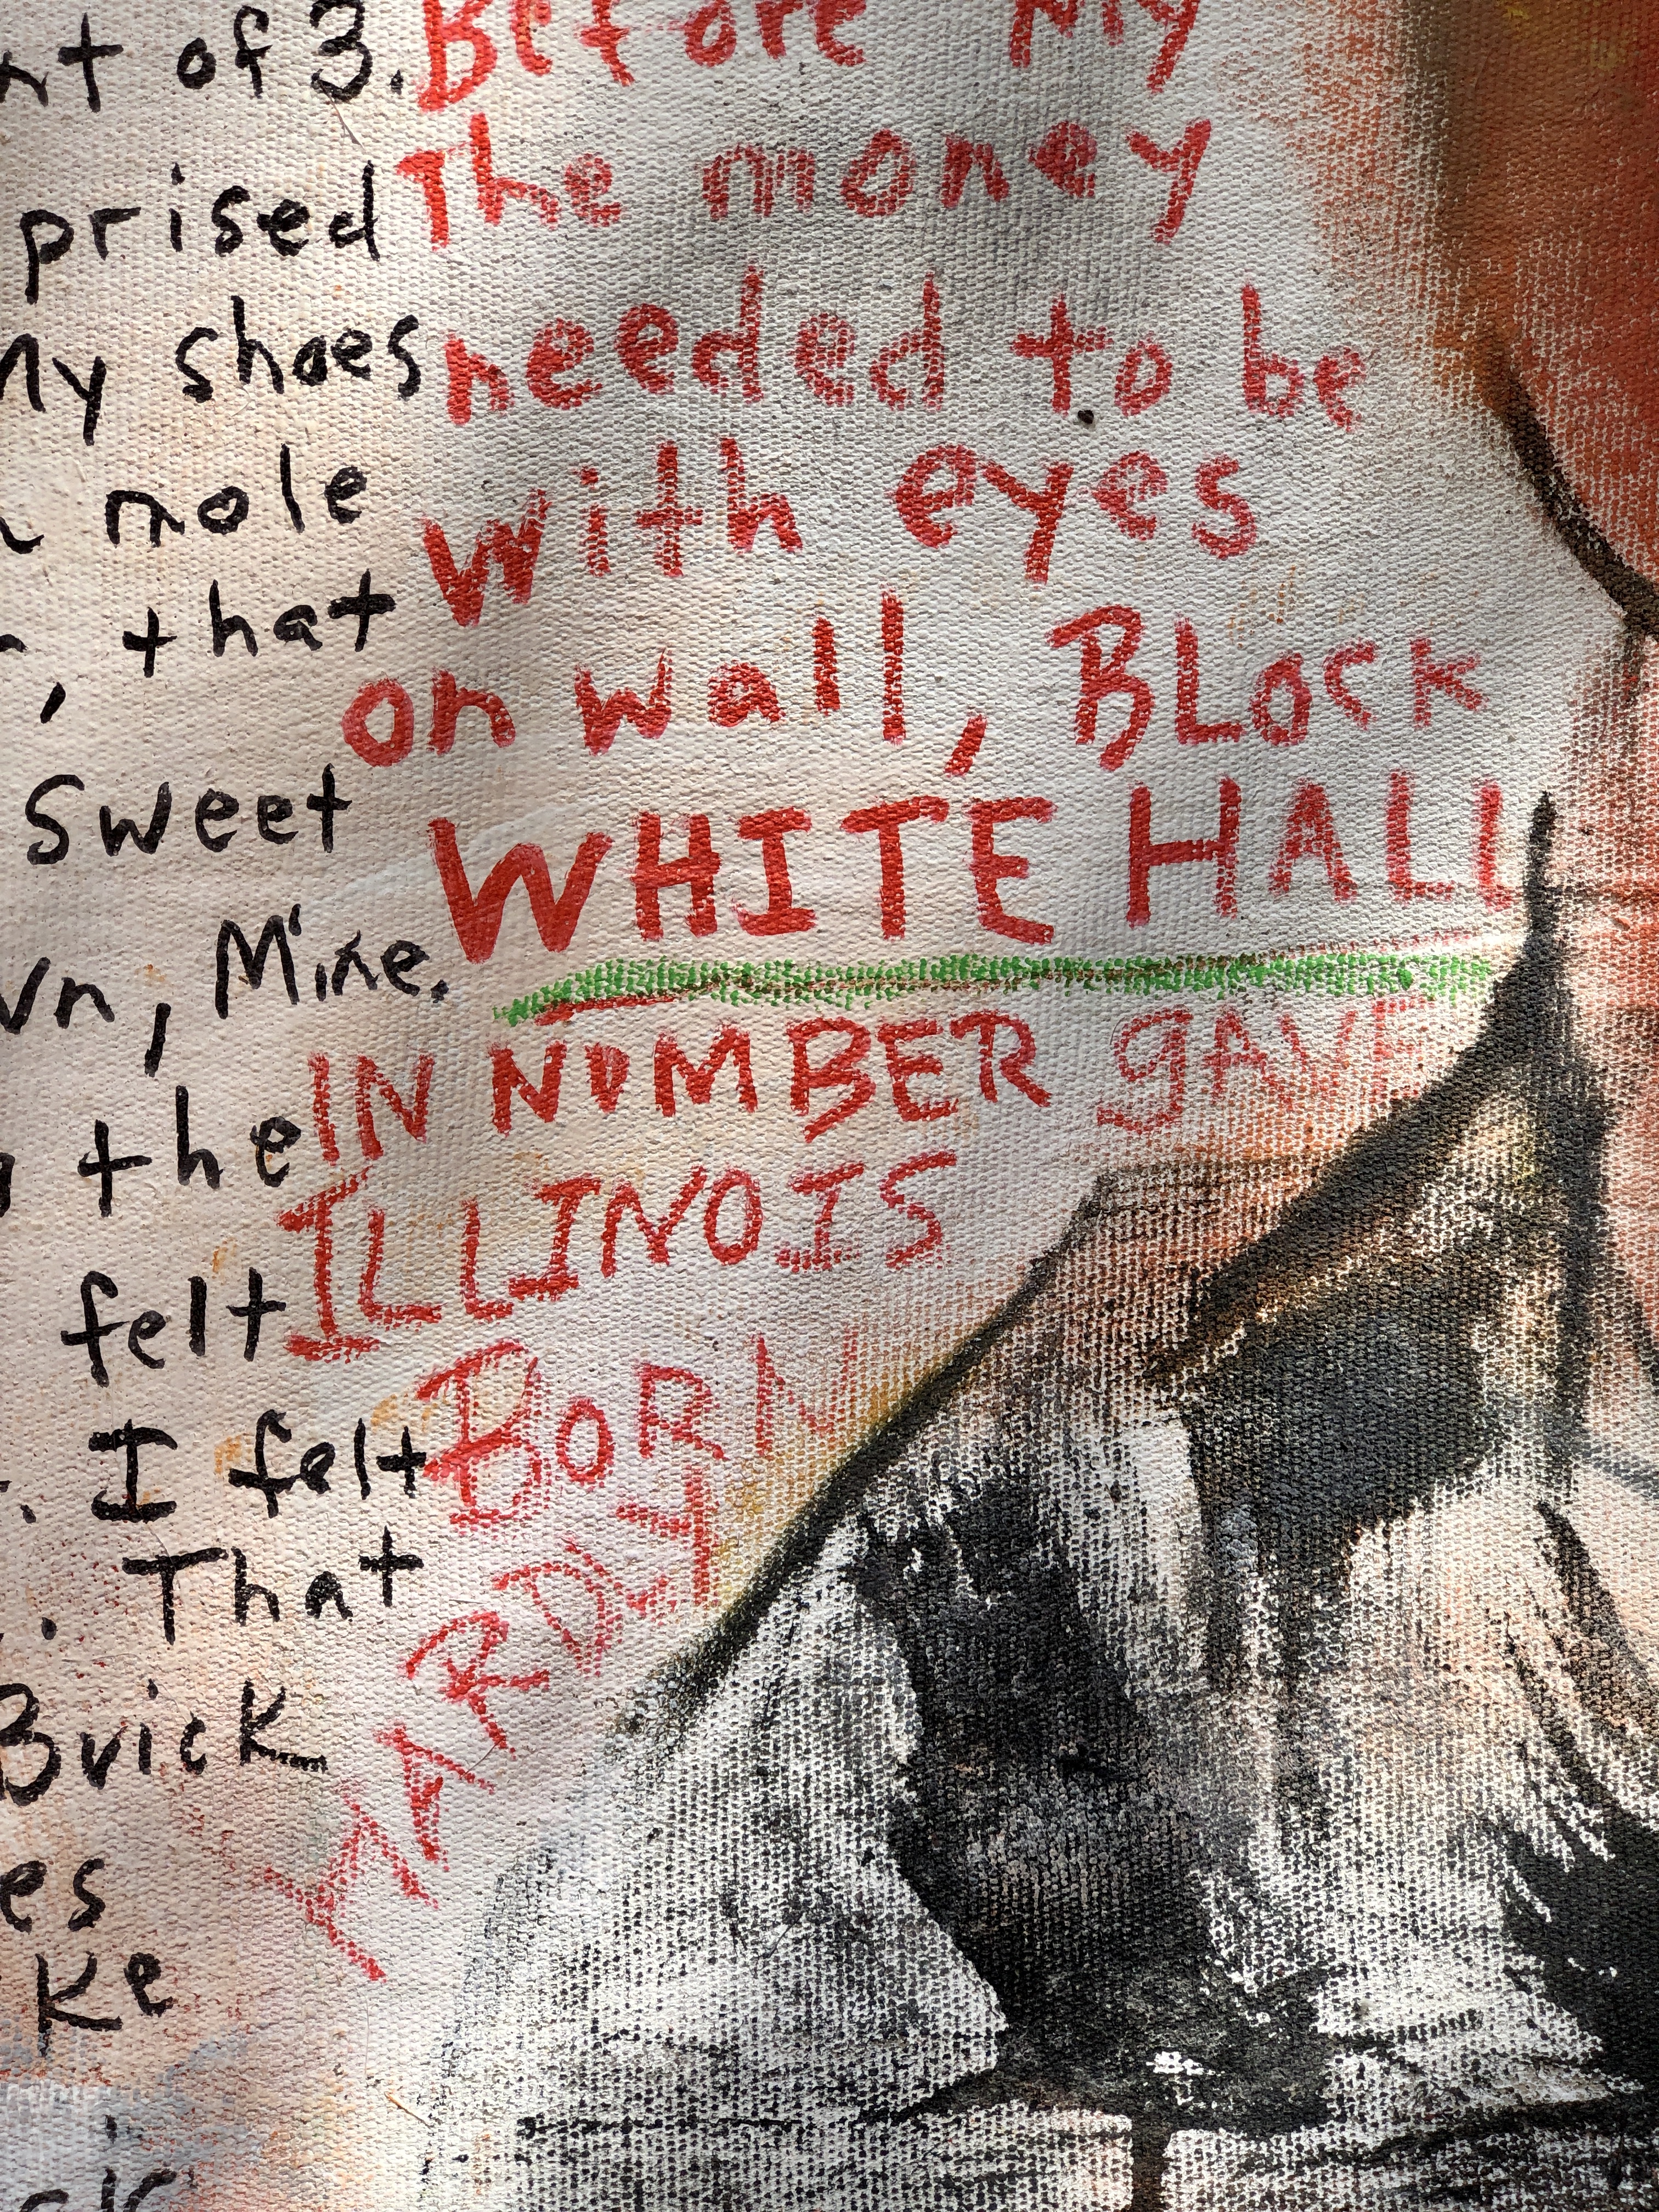 nt of 3.
prised
My shoes
mole
, that
Sweet
wn, Mine.
the
felt
. I felt
. That
Buick
es
ke
Before My
The money
needed to be
with eyes
on wall, BLack
WHITE HALL
IN NUMBER gAVE
ILLINOIS
BORN
HARDLY